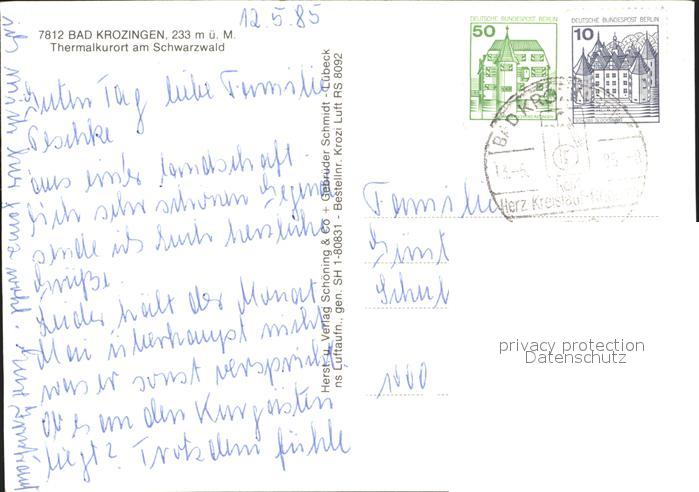 12.5.85
7812 BAD KROZINGEN, 233 m ü. M.
Thermalkurort am Schwarzwald
Guten Tag liebe Familie
Peschke
aus einer landschaft-
lich sehr schönen Gegend
sende ich Euch herzliche
Grüße.
Leider hält der Monat
Mai überhaupt nicht
was er sonst verspricht
ob es an den Kurgästen
liegt? Trotzdem fühle
ich mich hier
Herst. u. Verlag Schöning & Co + Gebrüder Schmidt - Lübeck
ns Luftaufn., gen. SH 1-60831 - Bestellnr. Krozi Luft RS 8092
DEUTSCHE BUNDESPOST BERLIN
50
DEUTSCHE BUNDESPOST BERLIN
10
BAD KRO
Herz-Kreislauf
Familie
Günt
Schul
1000
privacy protection
Datenschutz